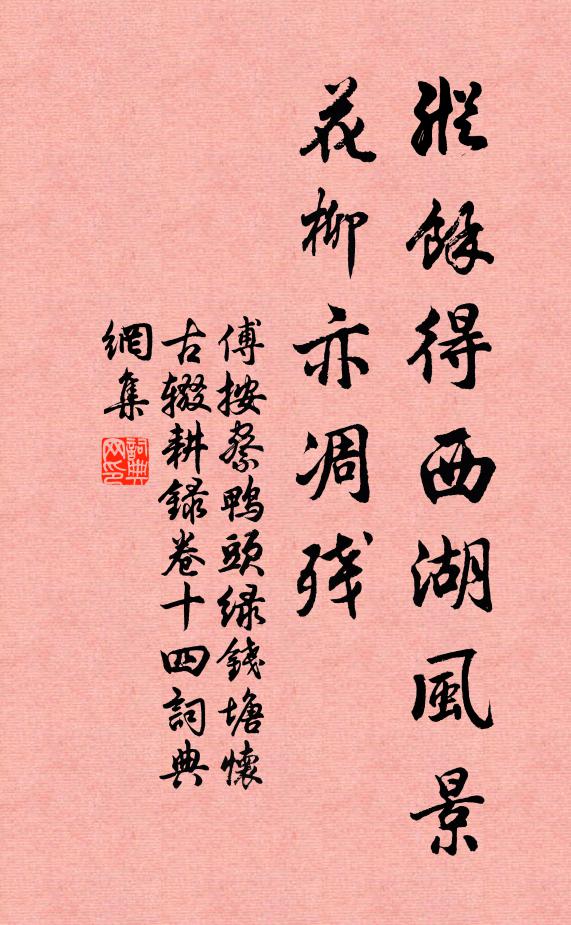 縱餘得西湖風景
花柳亦凋殘
傅按察鴨頭綠錢塘懷
古辍耕録卷十四詞典
網集
詞典網印